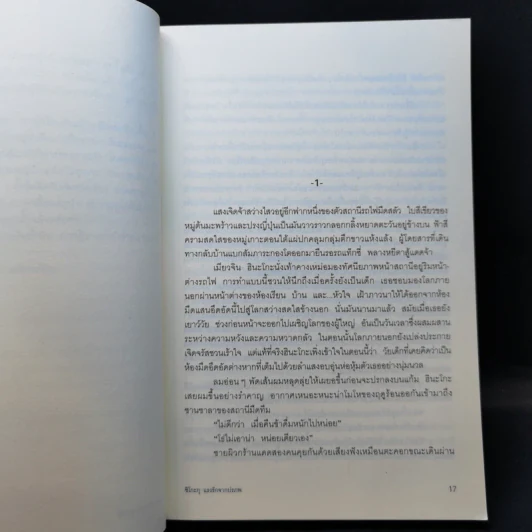 -1-
แสงเจิดจ้าสว่างไสวอยู่อีกฟากหนึ่งของตัวสถานีรถไฟมืดสลัว ใบสีเขียวของ
หมู่ต้นมะพร้าวและปรงญี่ปุ่นเป็นมันวาวราวกลอกกลิ้งหยาดตะวันอยู่ข้างบน ฟ้าสี
ครามสดใสของหมู่เกาะตอนใต้แผ่ปกคลุมกลุ่มตึกขาวแห้งแล้ง ผู้โดยสารที่เดิน
ทางกลับบ้านแบกสัมภาระกองโตออกมายืนรอรถแท็กซี่ พลางหยีตาสู้แดดจ้า
เมียวจิน ฮินะโกะนั่งเท้าคางเหม่อมองทัศนียภาพหน้าสถานีอยู่ริมหน้า-
ต่างรถไฟ การทำแบบนี้ชวนให้นึกถึงเมื่อครั้งยังเป็นเด็ก เธอชอบมองโลกภาย
นอกผ่านหน้าต่างของห้องเรียน บ้าน และ...หัวใจ เฝ้าภาวนาให้ได้ออกจากห้อง
มืดแสนอึดอัดนี้ไปสู่โลกสว่างสดใสข้างนอก นั่นมันนานมาแล้ว สมัยเมื่อเธอยัง
เยาว์วัย ช่วงก่อนหน้าจะออกไปเผชิญโลกของผู้ใหญ่ อันเป็นวันเวลาซึ่งผสมผสาน
ระหว่างความหวังและความหวาดกลัว ในตอนนั้นโลกภายนอกยังเปล่งประกาย
เจิดจรัสชวนเร้าใจ แต่แท้ที่จริงฮินะโกะเพิ่งเข้าใจในตอนนี้ว่า วัยเด็กที่เคยคิดว่าเป็น
ห้องมืดอึดอัดต่างหากที่เต็มไปด้วยลำแสงอบอุ่นห่อหุ้มตัวเธออย่างนุ่มนวล
ลมอ่อนๆ พัดเส้นผมหลุดลุ่ยให้เผยอขึ้นก่อนจะปรกลงบนแก้ม ฮินะโกะ
เสยผมขึ้นอย่างรำคาญ อากาศเหนอะหนะน่าโมโหของฤดูร้อนออกันเข้ามาถึง
ชานชาลาของสถานีมืดทึม
“ไม่ดีกว่า เมื่อคืนข้าดื่มหนักไปหน่อย”
“โธ่ไม่เอาน่า หน่อยเดียวเอง”
ชายผิวกร้านแดดสองคนคุยกันด้วยเสียงฟังเหมือนตะคอกขณะเดินผ่าน
ชิโกะกุ แดนศักดาปรภพ 17